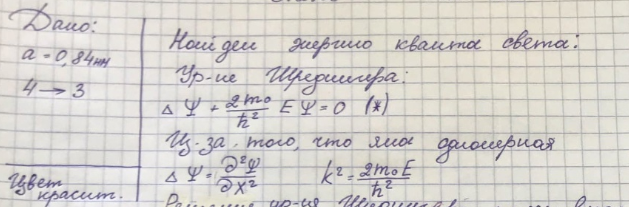 Дано:
a = 0,84 нм
4 → 3
Цвет
красит.
Найдем энергию кванта света:
Ур-ие Шредингера:
Δ Ψ + 2m₀/ħ² E Ψ = 0 (*)
Из-за того, что яма одномерная
Δ Ψ = ∂²Ψ/∂x² k² = 2m₀E/ħ²